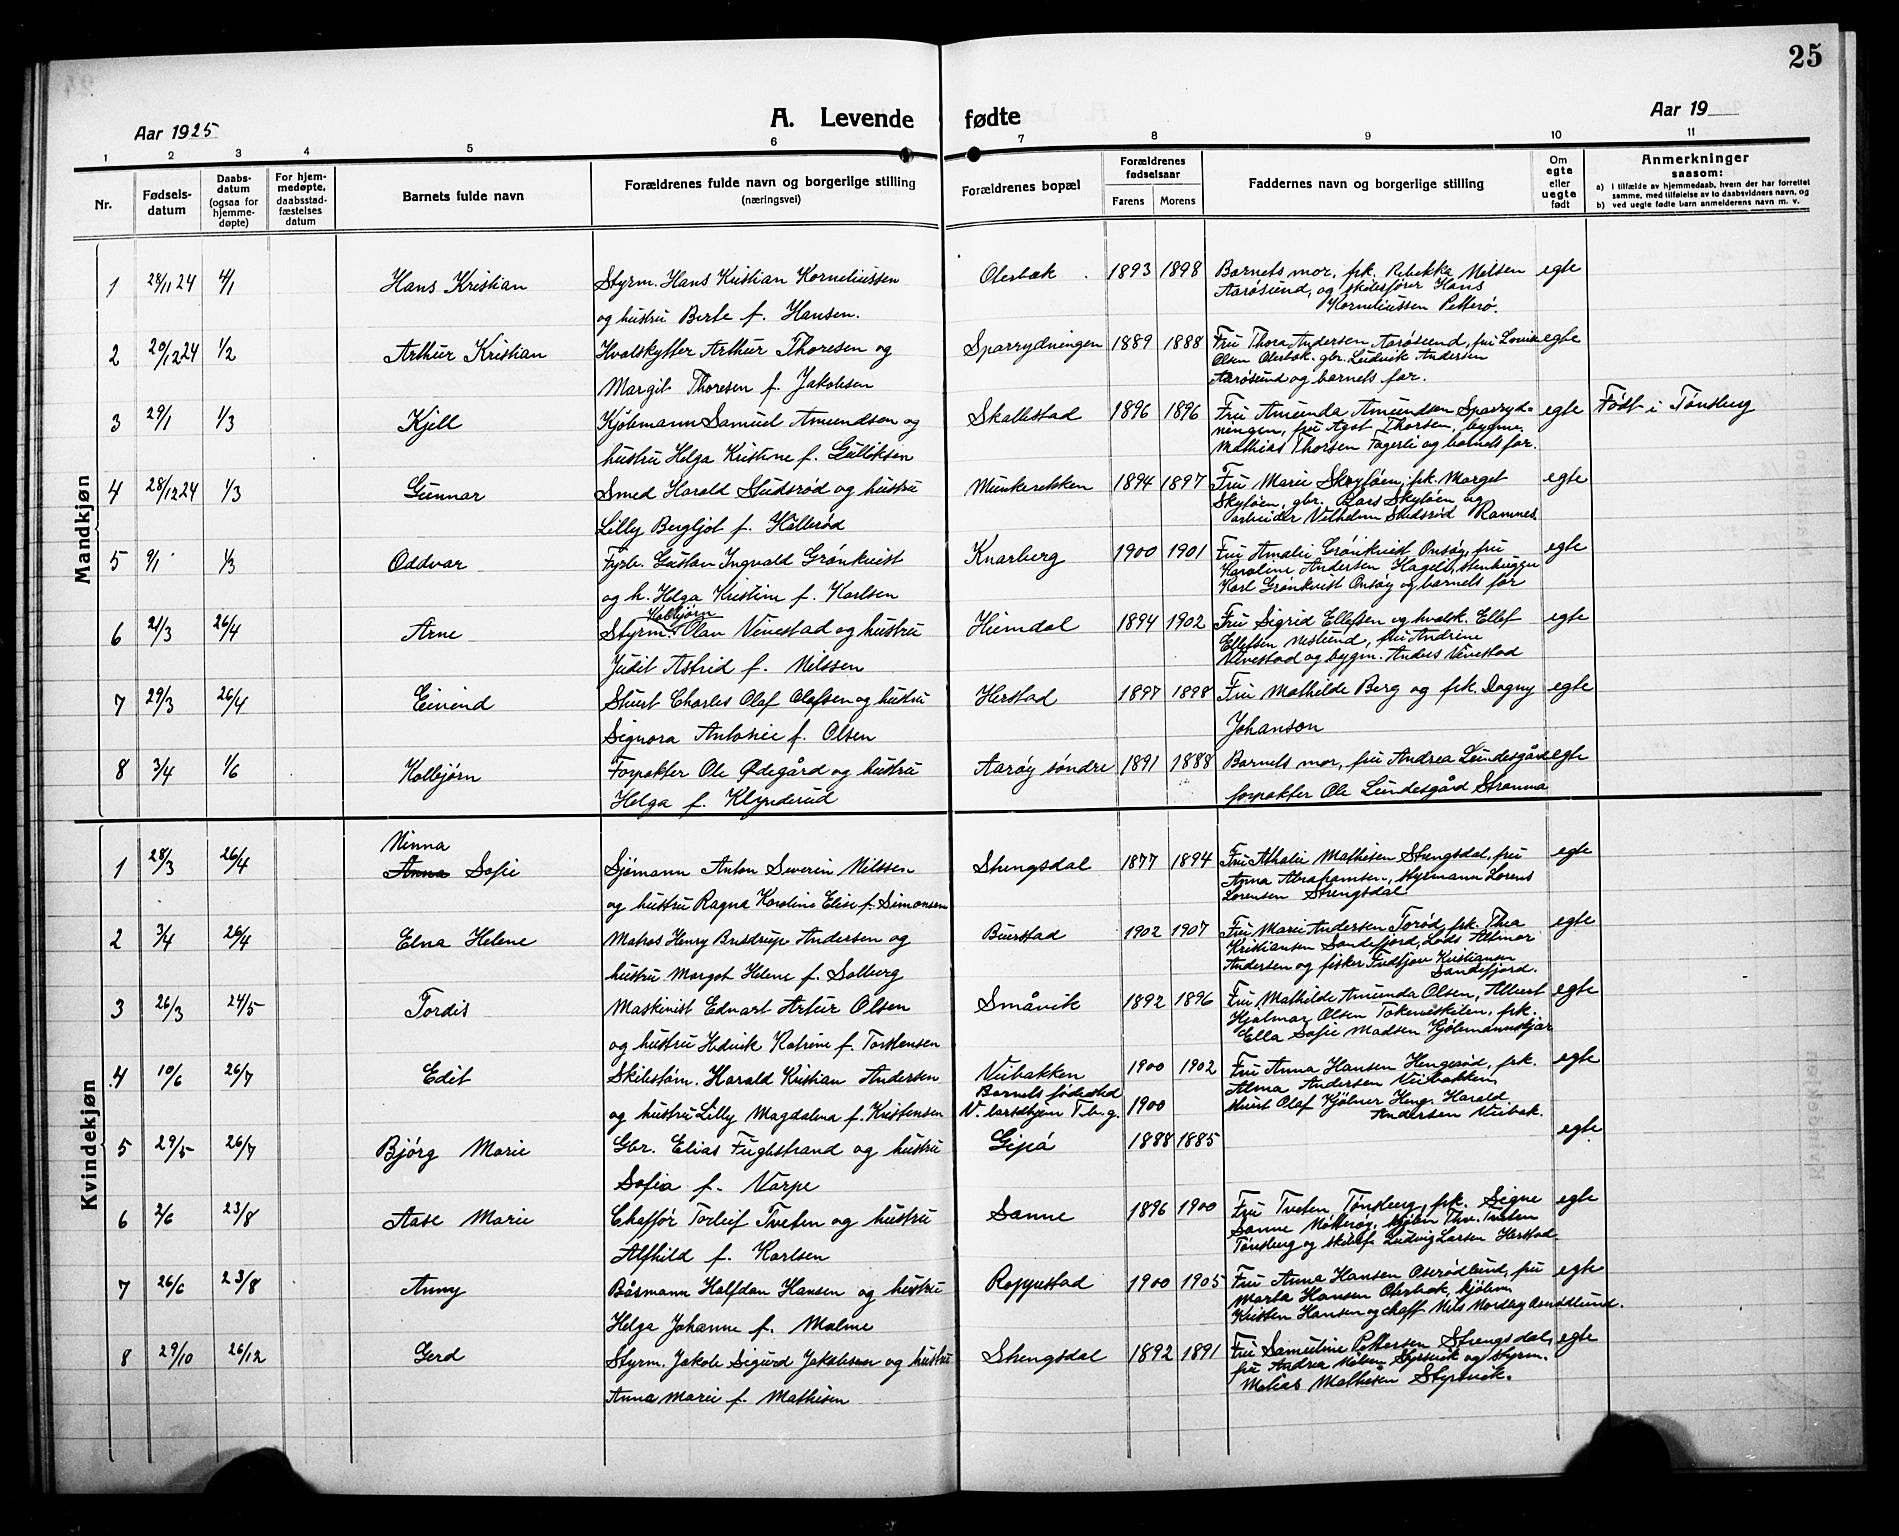 25
Aar 1925
A. Levende fødte
Aar 19
1 2 3 4 5 6 7 8 9 10 11
Nr.
Fødsels-
datum
Daabs-
datum
(ogsaa for
hjemme-
døpte)
For hjem-
medøpte,
daabsstad-
fæstelses
datum
Barnets fulde navn
Forældrenes fulde navn og borgerlige stilling
(næringsvei)
Forældrenes bopæl
Forældrenes
fødselsaar
Farens Morens
Faddernes navn og borgerlige stilling
Om
egte
eller
uegte
født
Anmerkninger
saasom:
a) i tilfælde av hjemmedaab, hvem der har forrettet
samme, med tilføielse av to daabsvidners navn, og
b) ved uegte fødte barn anmelderens navn m. v.
Mandkjøn
1 28/11 24 4/1 Hans Kristian Styrm. Hans Kristian Korneliussen Olersbæk 1893 1898 Barnets mor, frk. Rebekka Nilsen egte
Aarøsund, og skibsfører Hans
og hustru Berte f. Hansen. Korneliussen Petterø.
2 20/12 24 1/2 Arthur Kristian Hvalskytter Arthur Thoresen og Sparrydningen 1889 1888 Fru Thora Andersen Aarøsund, fru Lovise egte
Olsen Olersbæk, gbr. Ludvik Andersen
Margit Thoresen f. Jakobsen Aarøsund og barnets far.
3 29/1 1/3 Kjell Kjøbmann Samuel Amundsen og Skallestad 1896 1896 Fru Amunda Amundsen Sparryd- egte Født i Tønsberg
ningen, fru Agot Thorsen, bygm.
hustru Helga Kristine f. Gulliksen Mathias Thorsen Fagerli og barnets far.
4 28/12 24 1/3 Gunnar Smed Harald Studsrød og hustru Munkerekken 1894 1897 Fru Marie Skyløen, frk. Margot egte
Skyløen, gbr. Lars Skyløen og
Lilly Bergljot f. Hillerød arbeider Vilhelm Studsrød Ramnes
5 9/1 1/3 Oddvar Fyrb. Gustav Ingvald Grönkvist Knarberg 1900 1901 Fru Amalie Grönkvist Onsøy, fru egte
Karoline Andersen stenhugger
og h. Helga Kristine f. Karlsen Karl Grönkvist Onsøy og barnets far
6 21/3 26/4 Arne Kolbjørn
Styrm. Olav Vivestad og hustru Hiemdal 1894 1902 Fru Sigrid Ellefsen og hvalsk. Ellef egte
Ellefsen Neslund, fru Andrine
Judit Astrid f. Nilssen Vivestad og bygm. Anders Vivestad
7 29/3 26/4 Eivind Stuert Charles Olaf Olafsen og hustru Herstad 1897 1898 Fru Mathilde Berg og frk. Dagny egte
Signora Antonie f. Olsen Johanson
8 3/4 1/6 Kolbjørn Forpakter Ole Ødegård og hustru Aarøy søndre 1891 1888 Barnets mor, fru Andrea Lundesgård egte
Helga f. Klynderud forpakter Ole Lundesgård Strømma
Kvindekjøn
Ninna
1 28/3 26/4 Anna Sofie Sjømann Anton Severin Nilssen Strengsdal 1877 1894 Fru Athalie Mathisen Strengsdal, fru egte
Anna Abrahamsen, styrmann Lorens
og hustru Ragna Karoline Elise f. Simonsen Lorensen Strengsdal
2 3/4 26/4 Elna Helene Matros Henry Brudrup Andersen og Buerstad 1902 1907 Fru Marie Andersen Torød, frk. Thea egte
Kristiansen Sandefjord, Lods Altmar
hustru Margot Helene f. Solberg Andersen og fisker Fridtjov Kristiansen
Sandefjord.
3 26/3 24/5 Tordis Maskinist Edvart Artur Olsen Småvik 1892 1896 Fru Mathilde Amunda Olsen, Albert egte
Hjalmar Olsen Tokeneskilen, frk.
og hustru Hedvik Katrine f. Torstensen Ella Sofie Madsen Kjøbmannskjær
4 10/6 26/7 Edit Skibstøm. Harald Kristian Andersen Veibakken 1900 1902 Fru Anna Hansen Hengsrød, frk. egte
Barnets fødested Alma Andersen Veibakken
og hustru Lilly Magdalena f. Kristensen V. larsthjem T.b.g. 1900 stuert Olaf Kjølner Heng. Harald
Andersen Veibak.
5 29/5 26/7 Bjørg Marie Gbr. Elias Fuglestrand og hustru Gipø 1888 1885 egte
Sofia f. Varpe
6 2/6 23/8 Aase Marie Chaffør Torleif Tveten og hustru Sanne 1896 1900 Fru Tveten Tønsberg, frk. Signe egte
Sanne Nøtterøy, kjøbm Thv. Tveten
Alfhild f. Karlsen Tønsberg og skibsf. Ludvig Larsen Herstad
7 26/6 23/8 Anny Båsmann Halfdan Hansen og hustru Roppestad 1900 1905 Fru Anna Hansen Oserødlund, fru egte
Marta Hansen Olersbæk, kjøbm
Helga Johanne f. Malme Kristen Hansen og chaff. Nils Nordby Oserødlund.
8 29/10 26/12 Gerd Styrm. Jakob Sigurd Jakobsen og hustru Strengsdal 1892 1891 Fru Samueline Pettersen Strengsdal, egte
fru Andrea Styrsvik og styrm.
Anna Marie f. Mathisen Matias Mathisen Styrsvik.